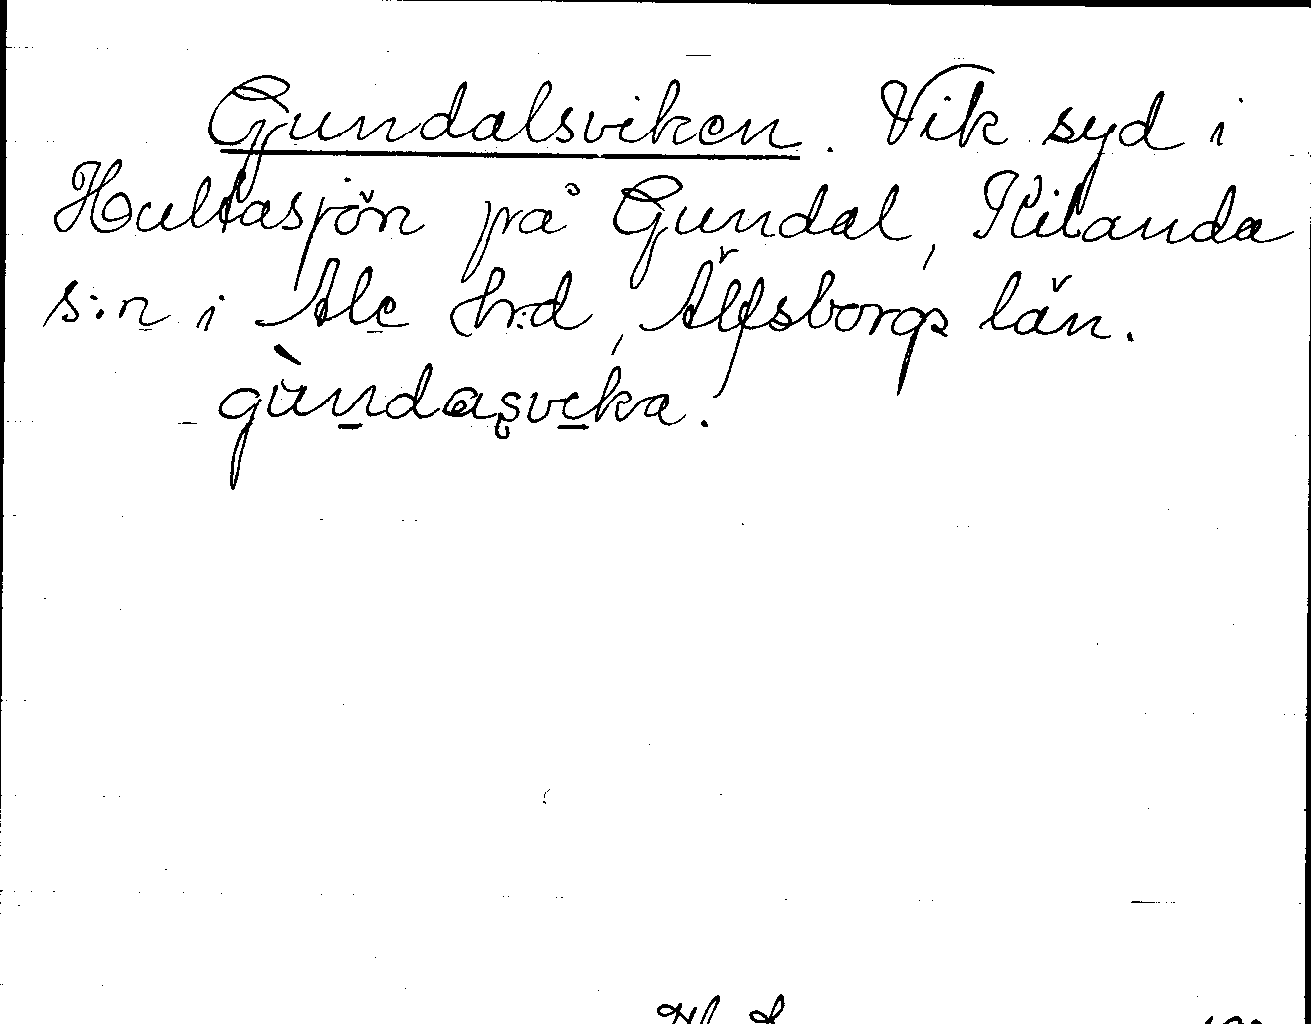 Gundalsviken. Vik syd i
Hultasjön på Gundal, Kilanda
s:n i Ale hrd, Älfsborgs län.
gùndasvika.